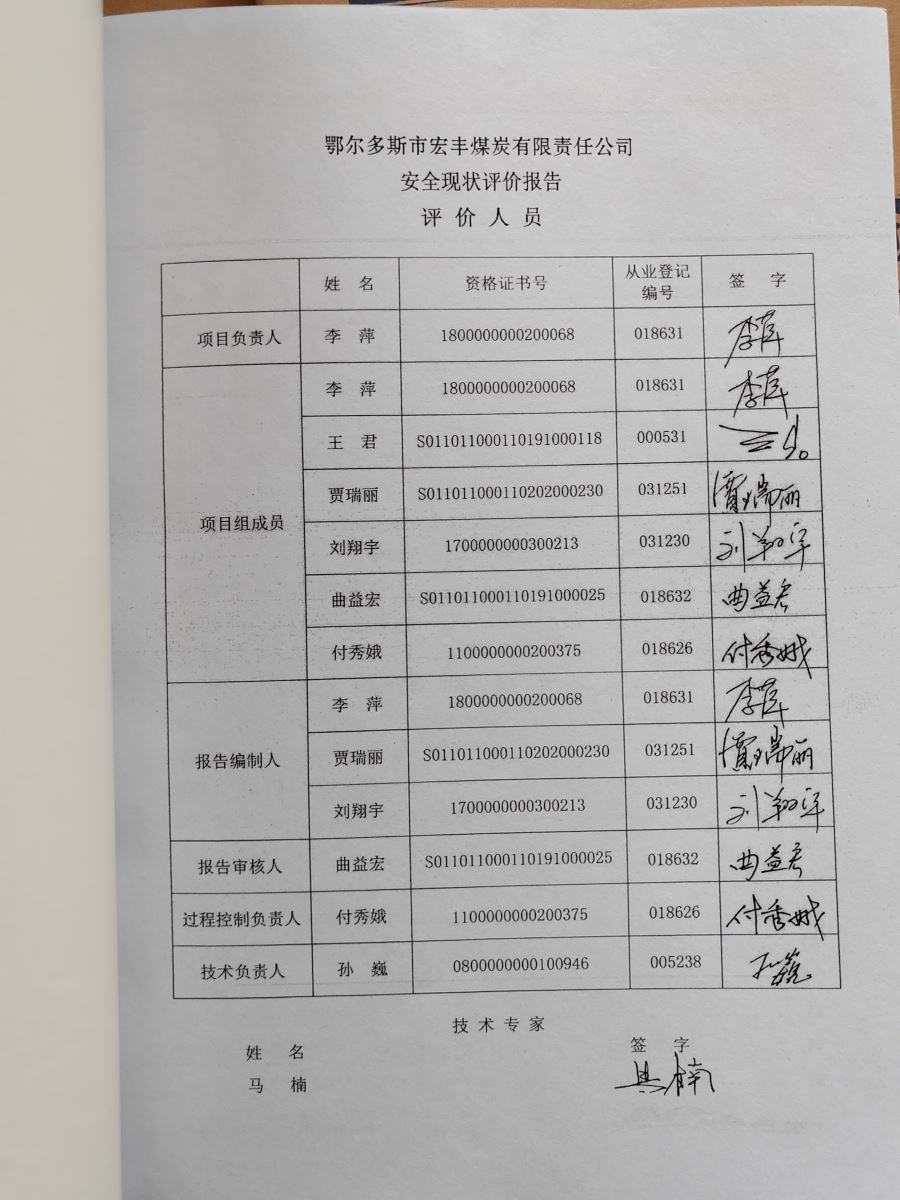 鄂尔多斯市宏丰煤炭有限责任公司
安全现状评价报告
评价人员
姓 名 资格证书号 从业登记编号 签 字
项目负责人 李 萍 1800000000200068 018631 李萍
项目组成员 李 萍 1800000000200068 018631 李萍
王 君 S011011000110191000118 000531
贾瑞丽 S011011000110202000230 031251 贾瑞丽
刘翔宇 1700000000300213 031230 刘翔宇
曲益宏 S011011000110191000025 018632 曲益宏
付秀娥 1100000000200375 018626 付秀娥
报告编制人 李 萍 1800000000200068 018631 李萍
贾瑞丽 S011011000110202000230 031251 贾瑞丽
刘翔宇 1700000000300213 031230 刘翔宇
报告审核人 曲益宏 S011011000110191000025 018632 曲益宏
过程控制负责人 付秀娥 1100000000200375 018626 付秀娥
技术负责人 孙 巍 0800000000100946 005238 孙巍
技术专家
姓 名 签 字
马 楠 马楠